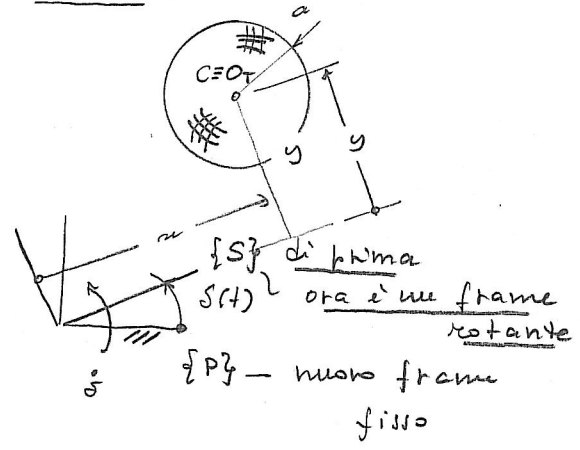 a
C≡O_T
y
y
x
{S} di prima
δ(t) ora è un frame
rotante
δ̇
{P} — nuovo frame
fisso